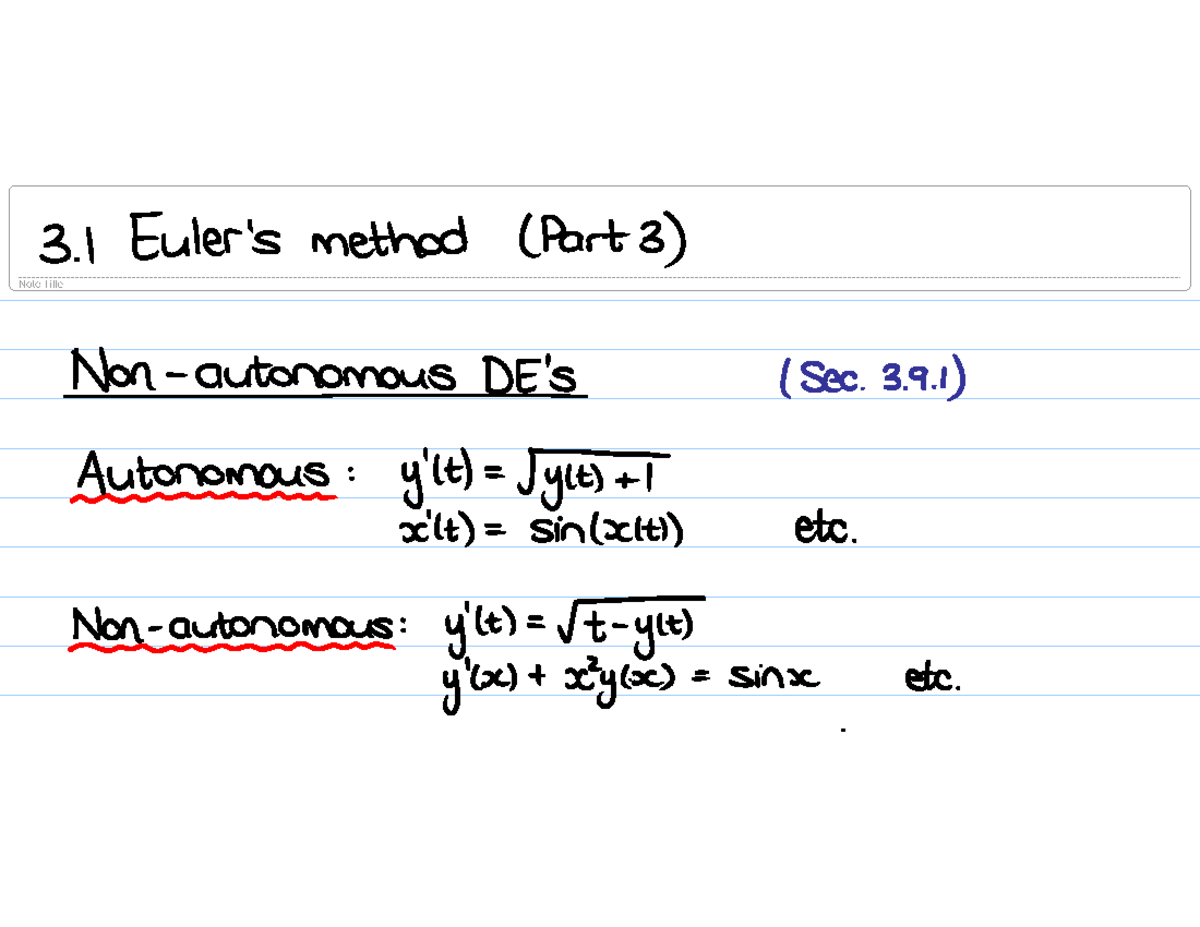 3.1 Euler's method (Part 3)
Note Title
Non-autonomous DE's (Sec. 3.9.1)
Autonomous: y'(t) = √(y(t) + 1)
x'(t) = sin(x(t)) etc.
Non-autonomous: y'(t) = √(t - y(t))
y'(x) + x²y(x) = sin x etc.